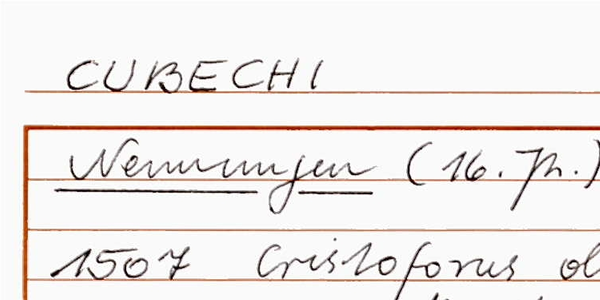 CUBECHI
Nennungen (16. Jh.)
1507 Cristoforus